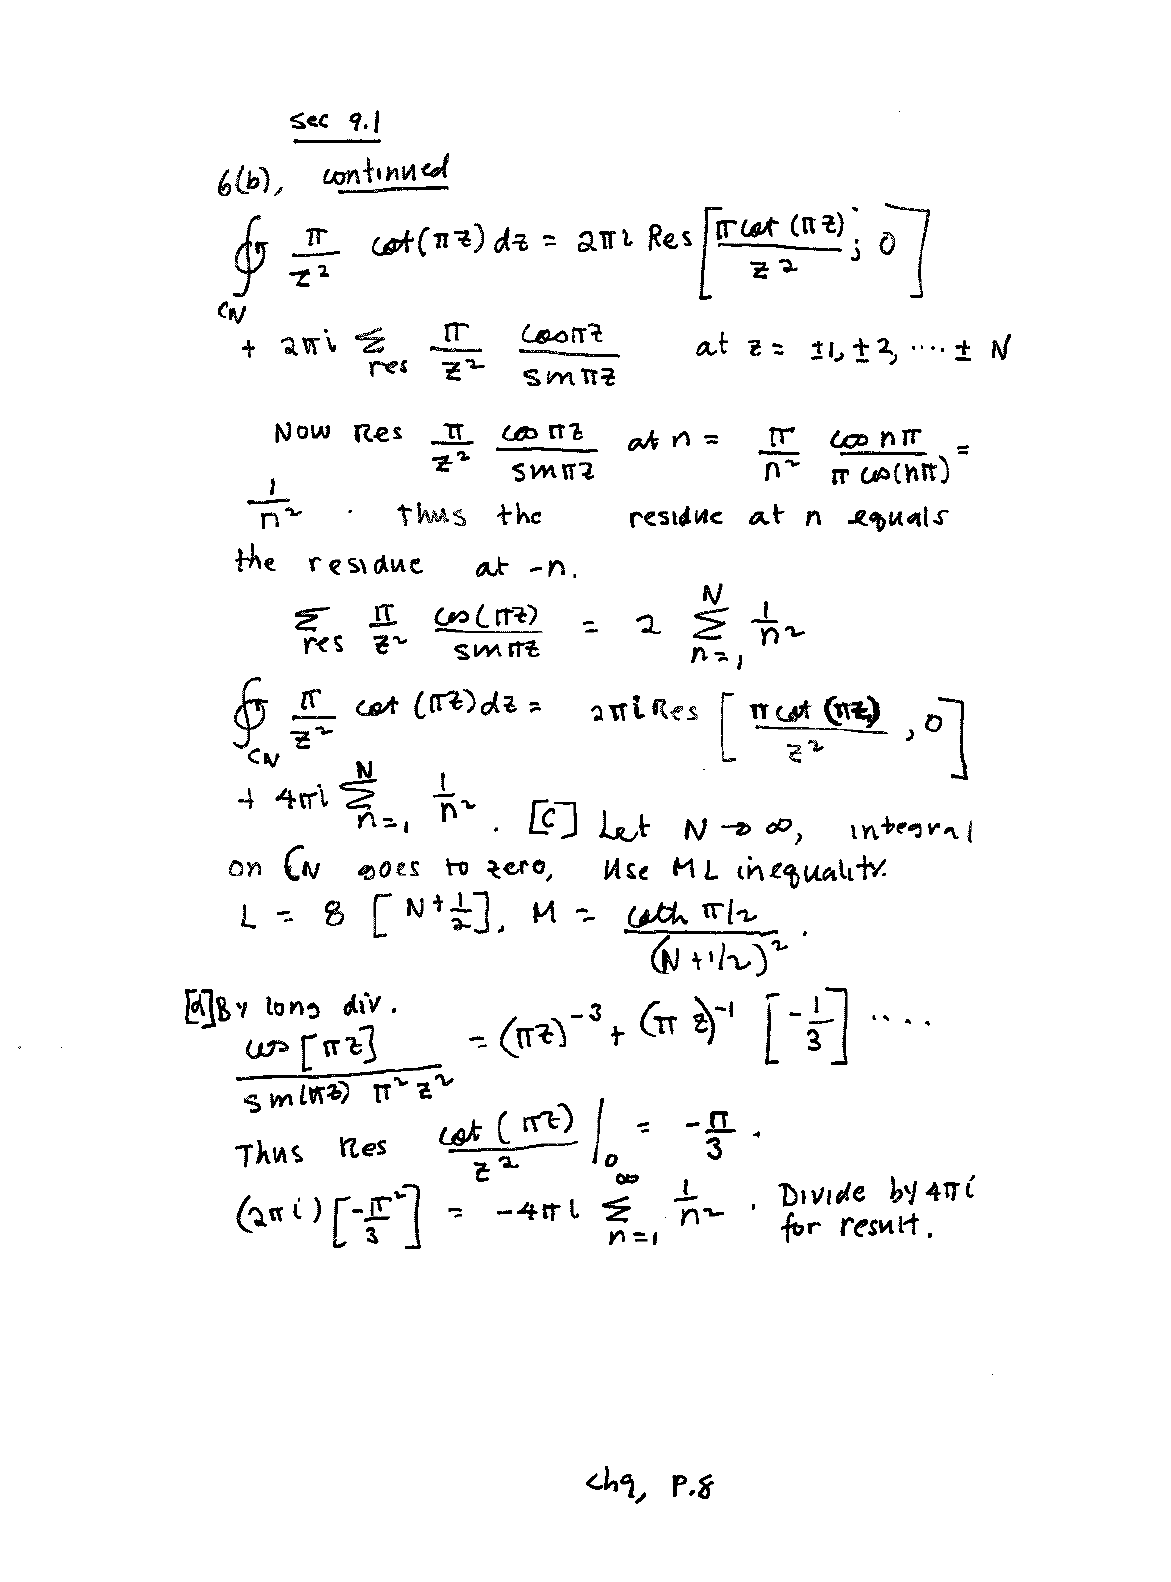 Sec 9.1
6(b), continued
∮_{C_N} π/z² cot(πz) dz = 2πi Res [π cot(πz)/z² ; 0]
+ 2πi Σ_{res} π/z² cosπz/sinπz at z = ±1, ±2, .... ± N
Now Res π/z² cosπz/sinπz at n = π/n² cos nπ/π cos(nπ) =
1/n² . Thus the residue at n equals
the residue at -n.
Σ_{res} π/z² cos(πz)/sinπz = 2 Σ_{n=1}^{N} 1/n²
∮_{C_N} π/z² cot(πz)dz = 2πi Res [π cot(πz)/z² , 0]
+ 4πi Σ_{n=1}^{N} 1/n² . [C] Let N → ∞, integral
on C_N goes to zero, Use ML inequality.
L = 8 [N+1/2], M = coth π/2/(N+1/2)² .
[d] By long div.
cos[πz]/sin(πz) π²z² = (πz)^{-3} + (πz)^{-1} [-1/3] ....
Thus Res cot(πz)/z² |_0 = -π/3 .
(2πi)[-π²/3] = -4πi Σ_{n=1}^{∞} 1/n² . Divide by 4πi
for result.
Ch9, P.8